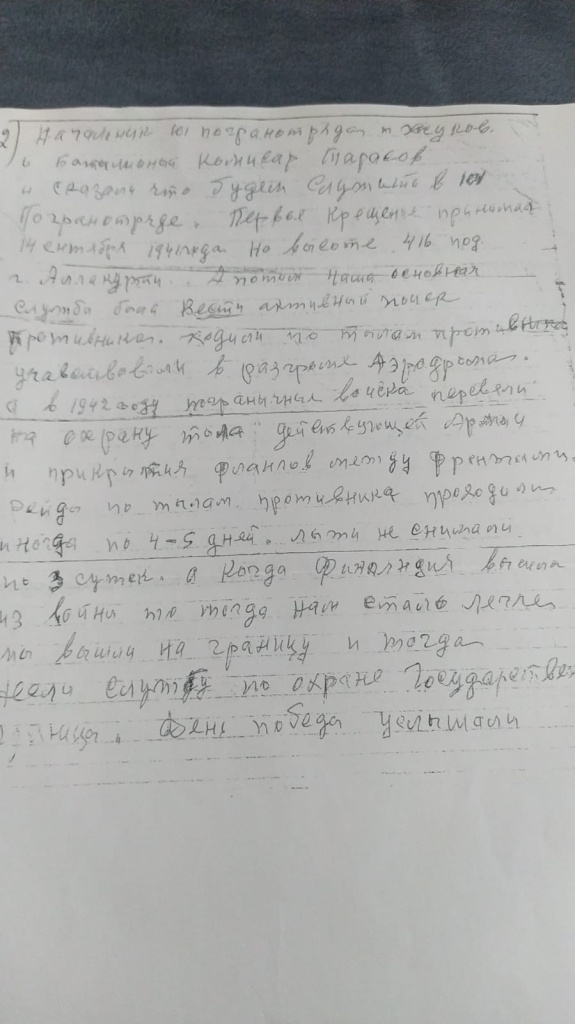 2) Начальник 101 погранотряда п Жуков.
и батальоный комисар Тарасов
и сказали что будем служить в 101
Погранотряде. Первое крещенье принимал
14 сентября 1941 года на высоте 416 под
г. Алланкуртти. А потом наша основная
служба была вести активный поиск
противника. ходили по тылам противника
учавствовали в разгроме Аэродрома.
а в 1942 году пограничные войска перевели
на охрану тыла действующей Армии
и прикрытия флангов между фронтами.
рейды по тылам противника проходили
иногда по 4-5 дней. лыжи не снимали
по 3 суток. а когда Финляндия вышла
из войны то тогда нам стало легче
мы вышли на границу и тогда
несли службу по охране Государствен
День победы услышали